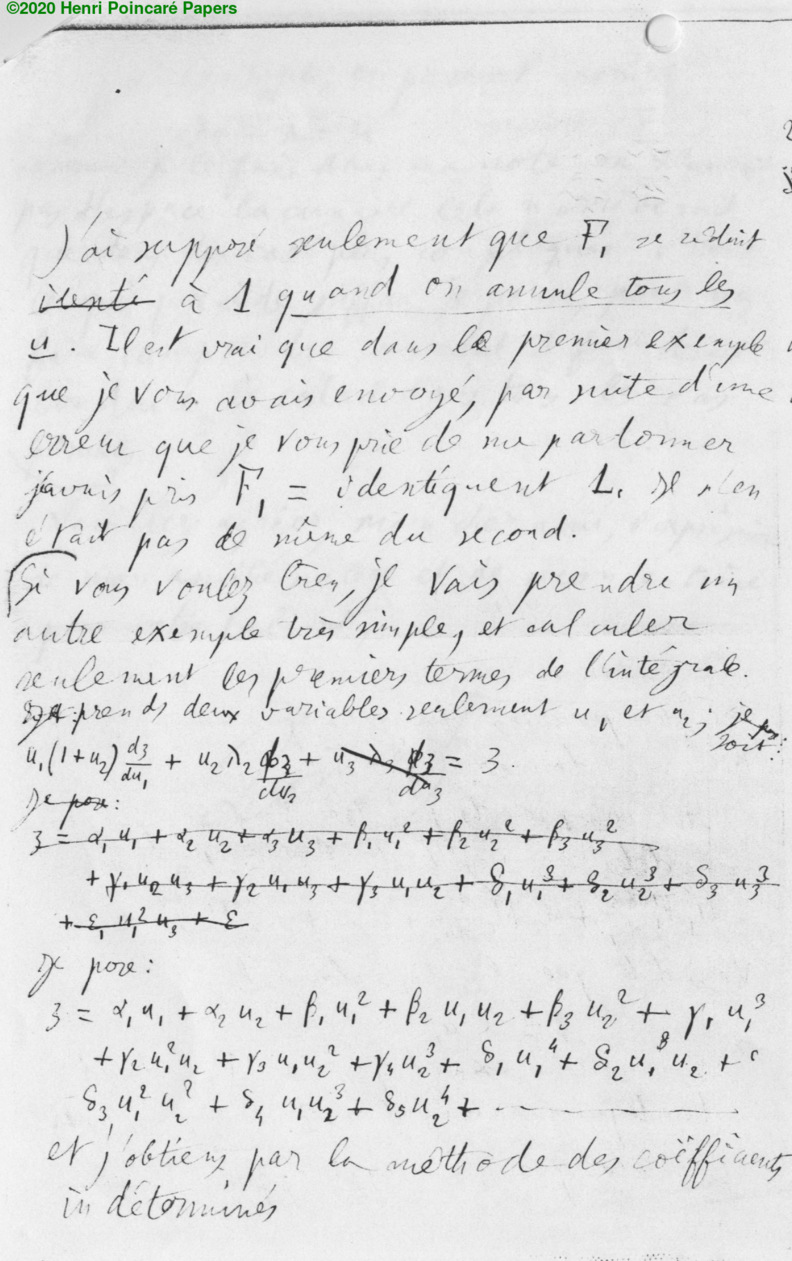 ©2020 Henri Poincaré Papers
J'ai supposé seulement que F₁ se réduit
identi à 1 quand on annule tous les
u. Il est vrai que dans le premier exemple
que je vous avais envoyé, par suite d'une
erreur que je vous prie de me pardonner
j'avais pris F₁ = identiquent 1. Il n'en
était pas de même du second.
Si vous voulez bien, je vais prendre un
autre exemple très simple, et calculer
seulement les premiers termes de l'intégrale.
prends deux variables seulement u₁ et u₂;
soit:
u₁(1+u₂) dz/du₁ + u₂ λ₂ dz/du₂ + u₃ λ₃ dz/du₃ = z.
Je pose:
z = α₁u₁ + α₂u₂ + α₃u₃ + β₁u₁² + β₂u₂² + β₃u₃²
+ γ₁u₂u₃ + γ₂u₁u₃ + γ₃u₁u₂ + δ₁u₁³ + δ₂u₂³ + δ₃u₃³
+ ε₁u₁²u₃ + ε
Je pose:
z = α₁u₁ + α₂u₂ + β₁u₁² + β₂u₁u₂ + β₃u₂² + γ₁u₁³
+ γ₂u₁²u₂ + γ₃u₁u₂² + γ₄u₂³ + δ₁u₁⁴ + δ₂u₁³u₂ +
δ₃u₁²u₂² + δ₄u₁u₂³ + δ₅u₂⁴ + - - -
et j'obtiens par la méthode des coëfficients
indéterminés